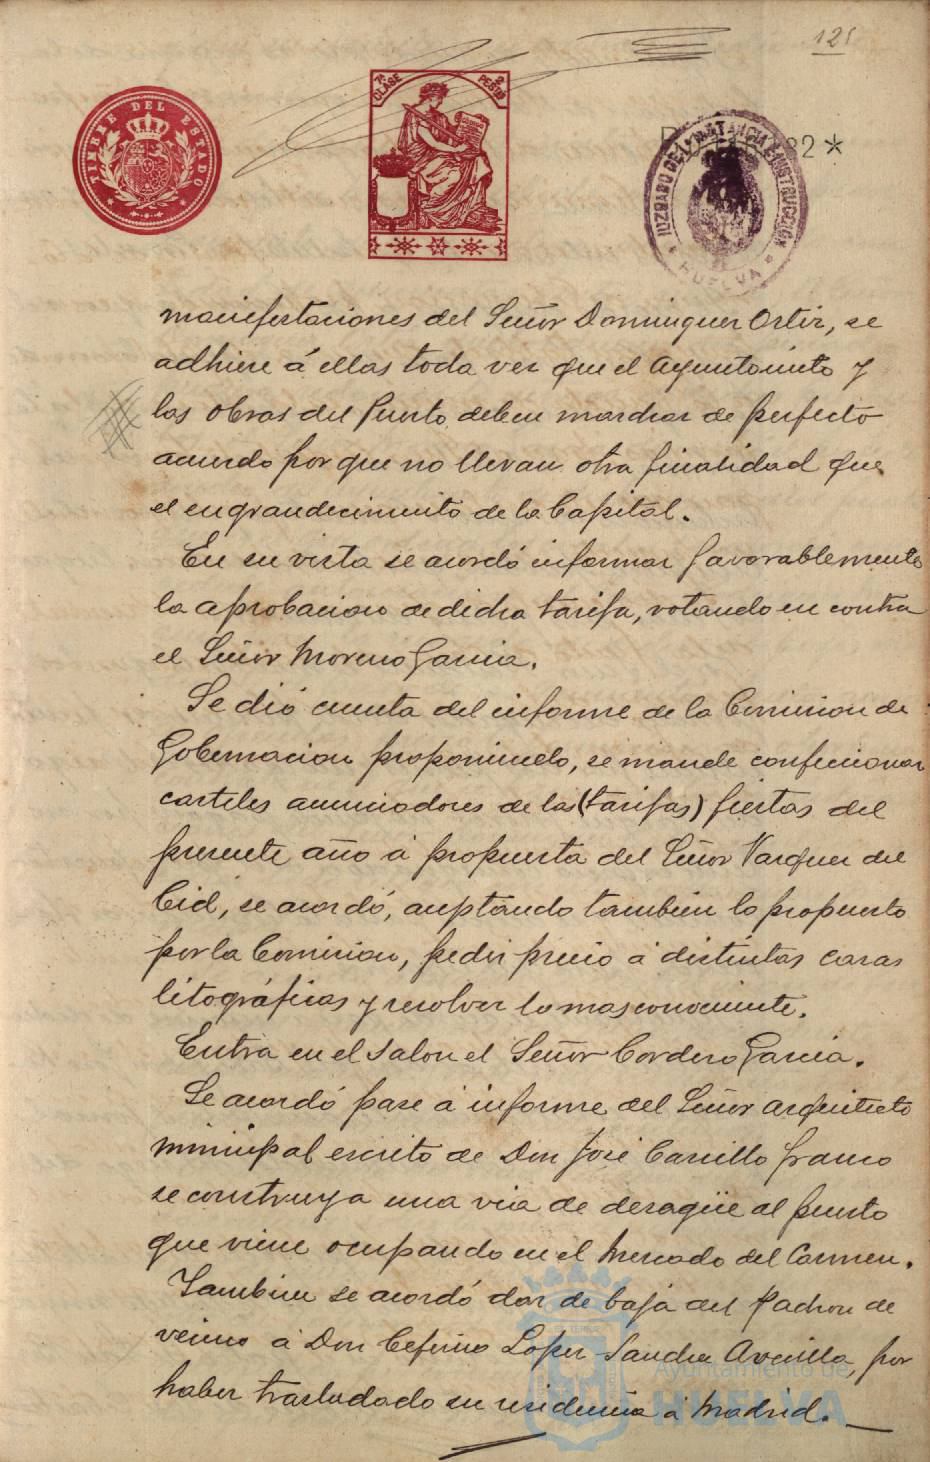 121
TIMBRE DEL ESTADO
7ª CLASE 2 PESTAS
JUZGADO DE 1ª INSTANCIA E INSTRUCCIÓN
HUELVA
manifestaciones del Señor Dominguez Ortiz, se
adhiere á ellas toda vez que el Ayuntamiento y
las obras del Puerto deben marchar de perfecto
acuerdo por que no llevan otra finalidad que
el engrandecimiento de la Capital.
En su vista se acordó informar favorablemente
la aprobacion de dicha tarifa, votando en contra
el Señor Moreno Garcia.
Se dió cuenta del informe de la Comision de
Gobernacion proponiendo, se mande confeccionar
carteles anunciadores de las (tarifas) fiestas del
presente año á propuesta del Señor Vazquez del
Cid, se acordó, aceptando tambien lo propuesto
por la Comision, pedir precio á distintas casas
litográficas y resolver lo mas conveniente.
Entra en el salon el Señor Cordero Garcia.
Se acordó pase á informe del Señor Arquitecto
municipal escrito de Don José Carrillo Franco
se construya una via de desagüe al puesto
que viene ocupando en el Mercado del Carmen.
Tambien se acordó dar de baja del Padron de
vecinos á Don Ceferino Lopez Sanchez Avecilla, por
haber trasladado su residencia a Madrid.
Ayuntamiento de
HUELVA